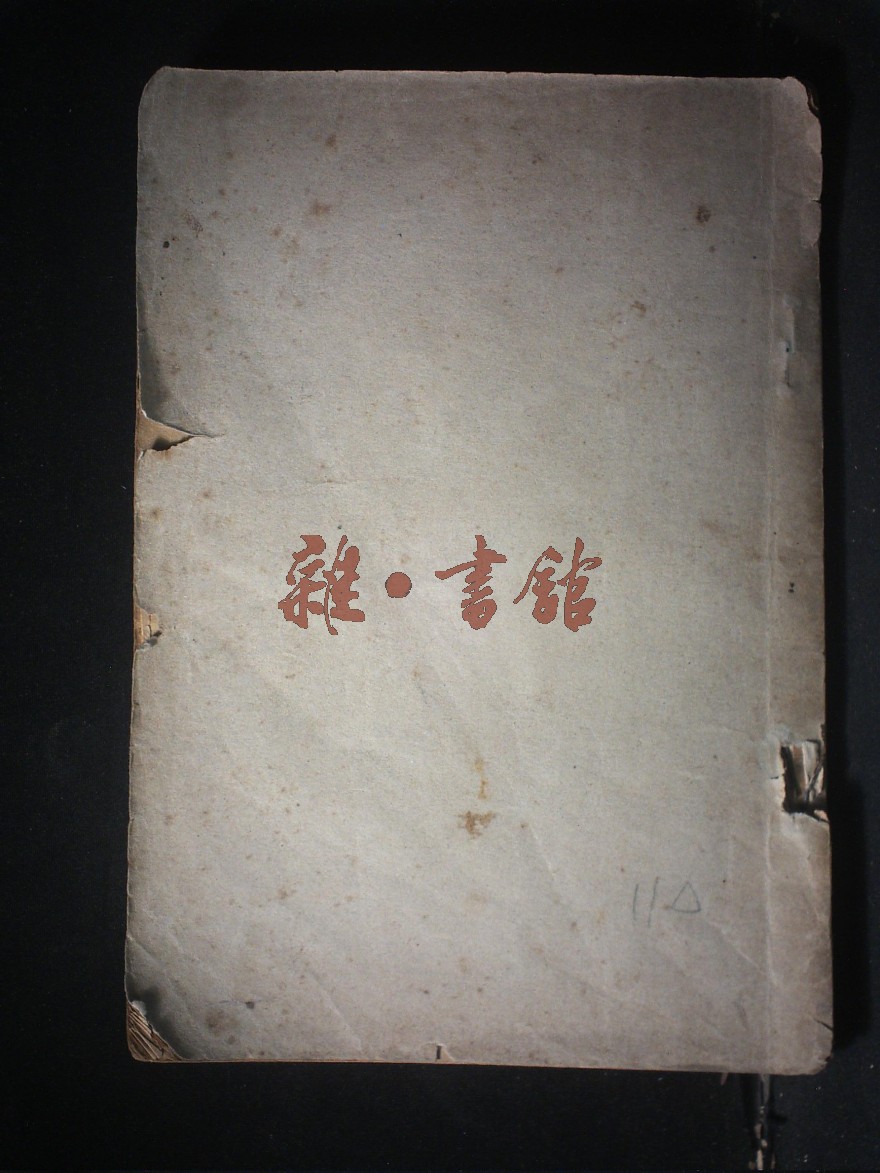 雜·書館
11△